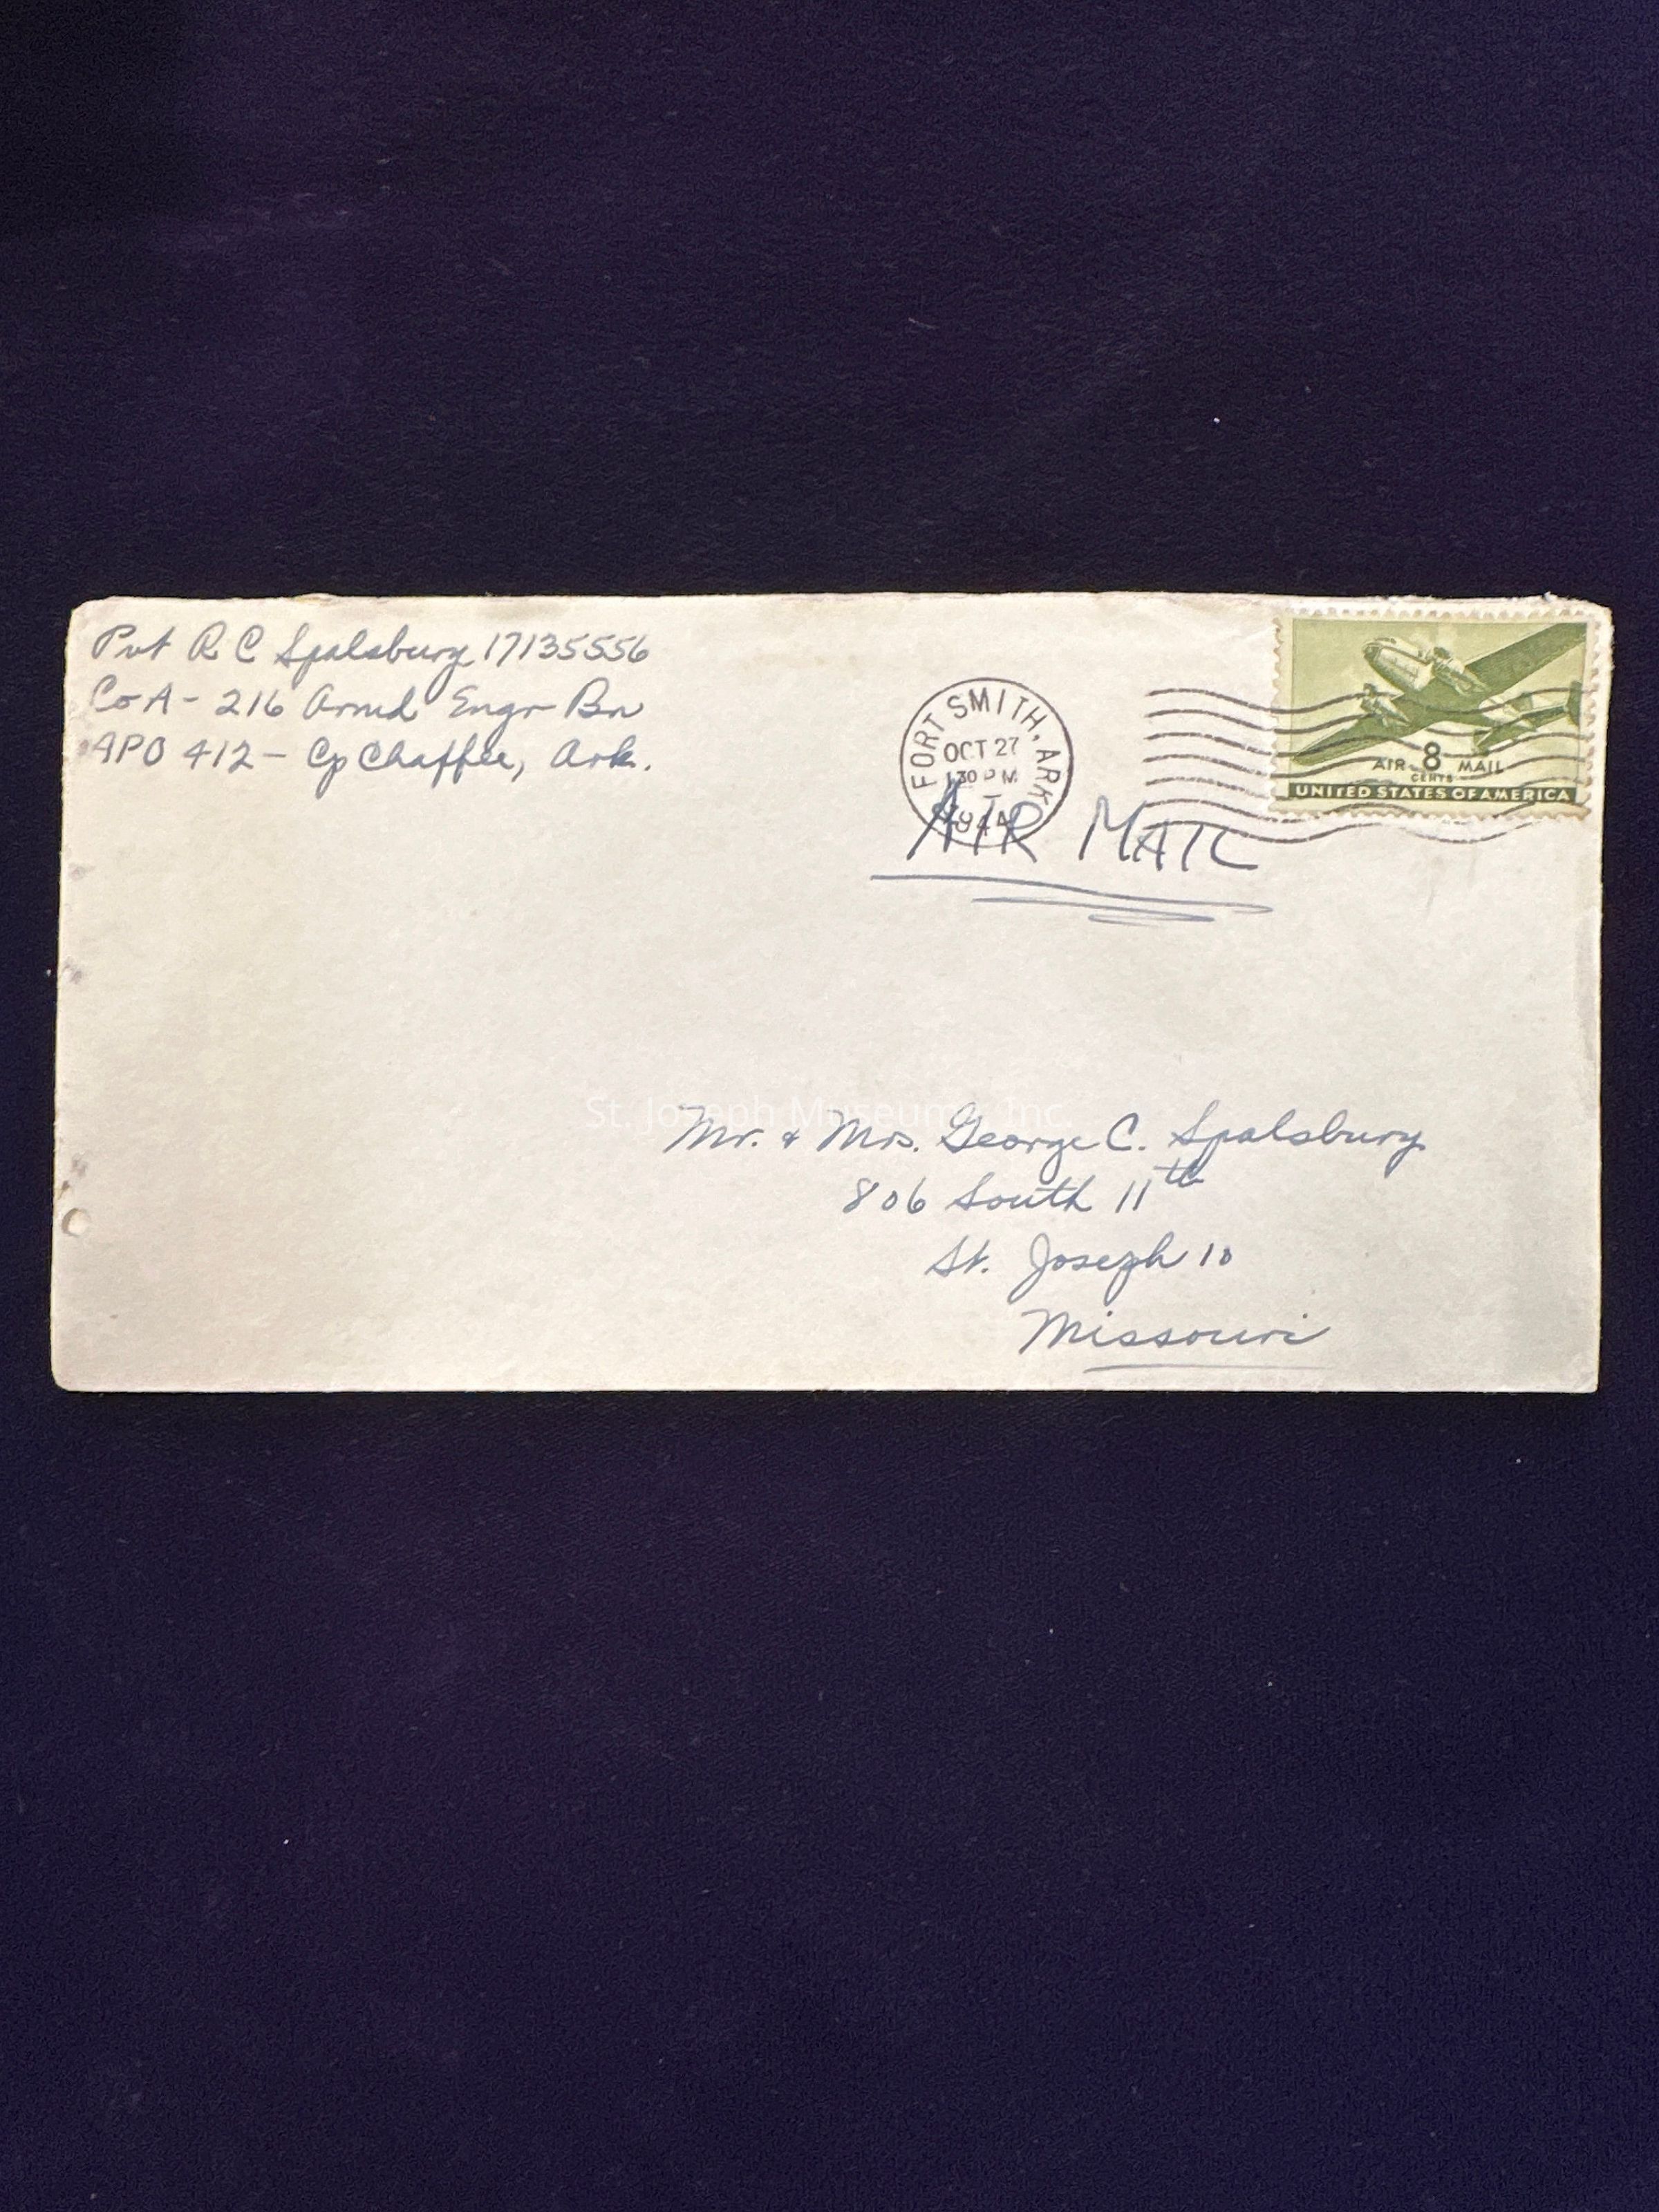 Pvt R C Spalsbury 17135556
Co A - 216 Armd Engr Bn
APO 412 - Cp Chaffee, Ark.
FORT SMITH, ARK.
OCT 27
130 PM
1944
AIR MAIL
AIR 8 MAIL
CENTS
UNITED STATES OF AMERICA
St. Joseph Museums, Inc.
Mr. & Mrs. George C. Spalsbury
806 South 11th
St. Joseph 10
Missouri